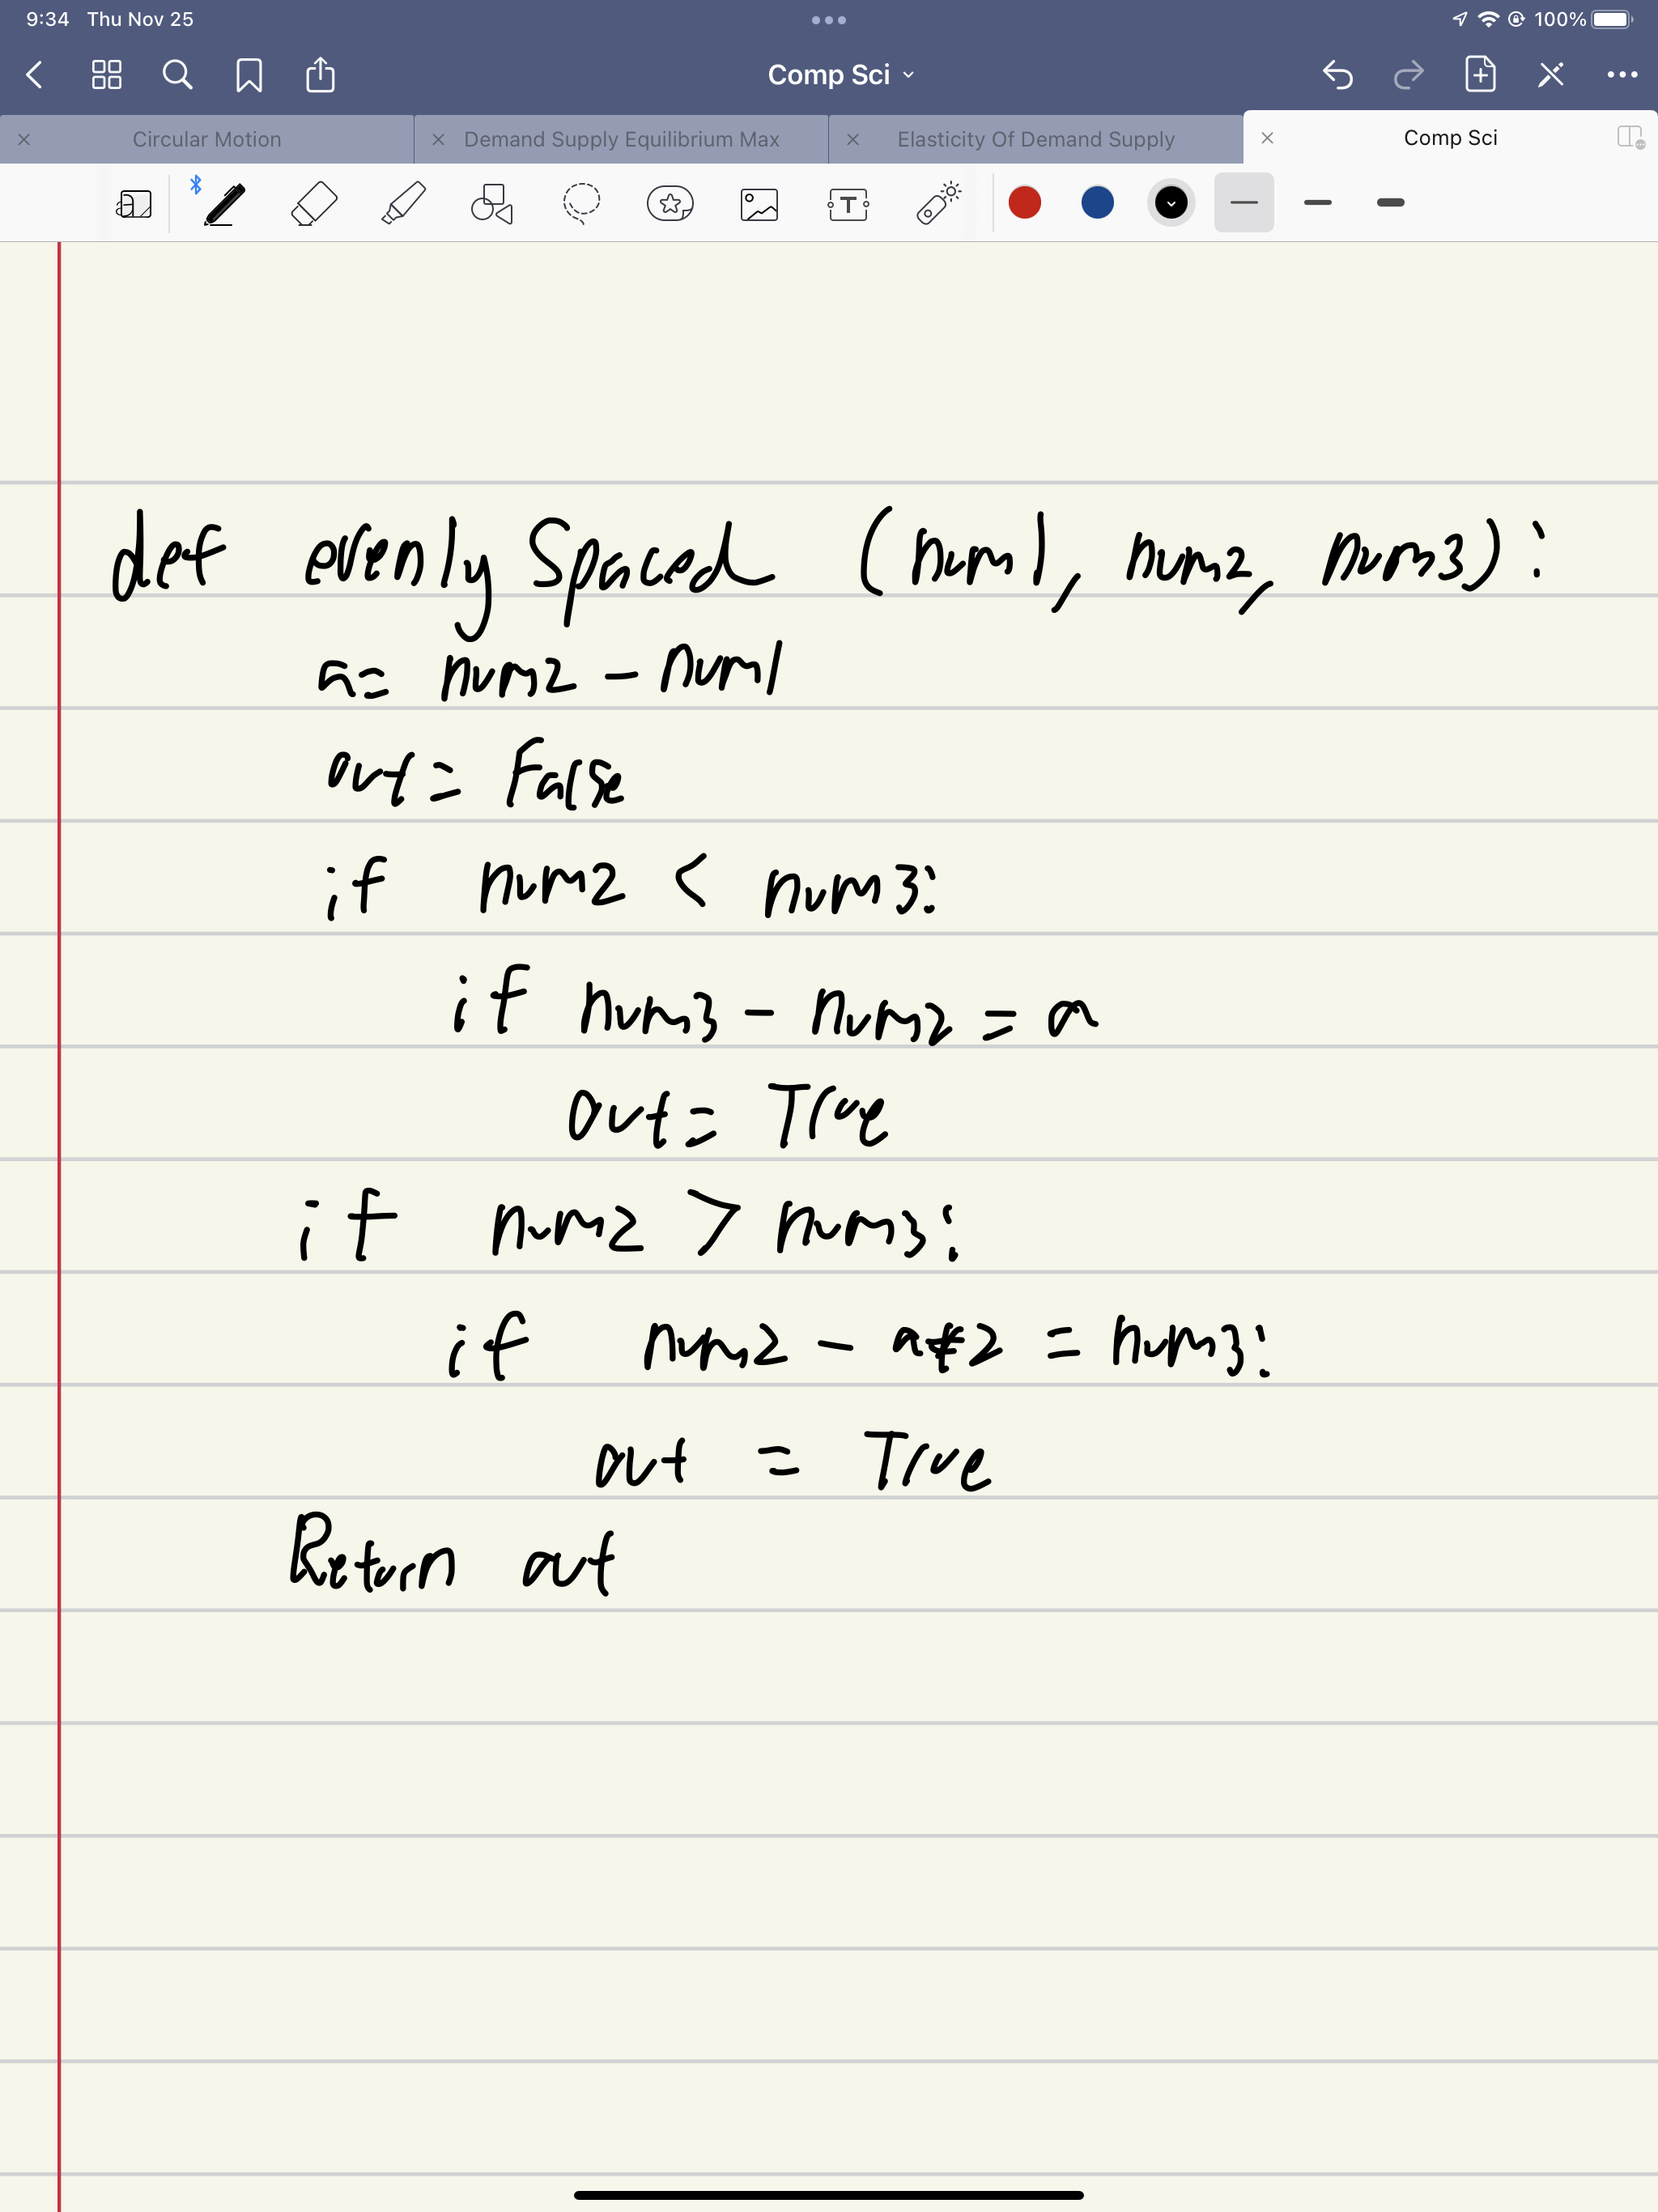 9:34 Thu Nov 25 100%
Comp Sci
Circular Motion Demand Supply Equilibrium Max Elasticity Of Demand Supply Comp Sci
def evenly Spaced (num1, num2, num3):
a= num2 - num1
out = False
if num2 < num3:
if num3 - num2 = a
out = True
if num2 > num3:
if num2 - a*2 = num3:
out = True
Return out